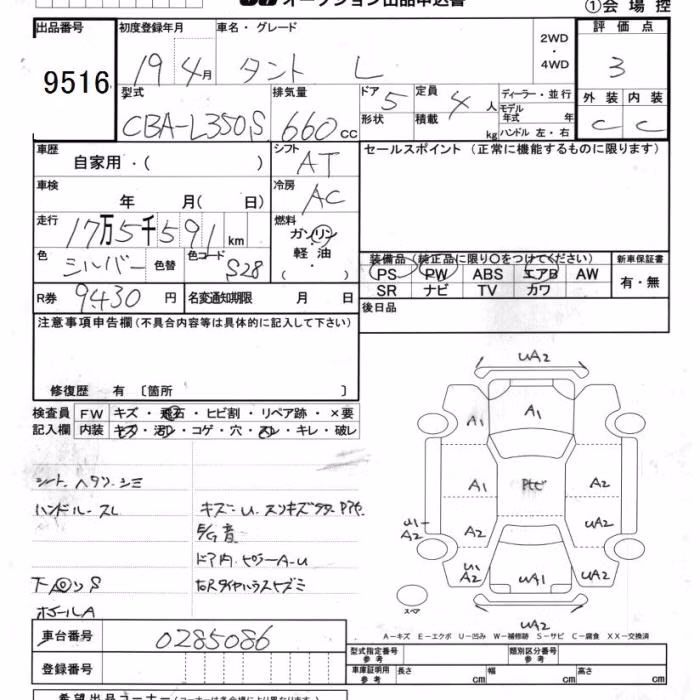 オークション出品申込書
①会場控
出品番号
9516
初度登録年月
19 4月
車名・グレード
タント L
2WD
・
4WD
評価点
3
型式
CBA-L350S
排気量
660cc
ドア 5
形状
定員 4人
積載 kg
ディーラー・並行
モデル
年式 年
ハンドル 左・右
外装 内装
C C
車歴
自家用・( )
シフト
AT
セールスポイント(正常に機能するものに限ります)
車検
年 月( 日)
冷房
AC
走行
17万5千591km
燃料
ガソリン
軽油
・
( )
色
シルバー
色替
色コード
S28
装備品(純正品に限り○をつけてください)
新車保証書
PS PW ABS エアB AW
SR ナビ TV カワ
有・無
R券
9430円
名変通知期限 月 日
後日品
注意事項申告欄(不具合内容等は具体的に記入して下さい)
修復歴 有〔箇所 〕
検査員 FW キズ・飛石・ヒビ割・リペア跡・×要
記入欄 内装 キズ・汚レ・コゲ・穴・スレ・キレ・破レ
シート ヘタリ シミ
ハンドルースレ
キズ
音
ドア内
ホイールA
UA2
A1
A1
A1
A2
A2
UA2
U1-
A2
U1
A2
UA1
UA2
UA2
スペア
A-キズ E-エクボ U-凹み W-補修跡 S-サビ C-腐食 XX-交換済
車台番号
0285086
登録番号
型式指定番号
参考
類別区分番号
参考
車庫証明用
参考
長さ cm
幅 cm
高さ cm
希望出品コーナー(コーナーは各会場により異なります)